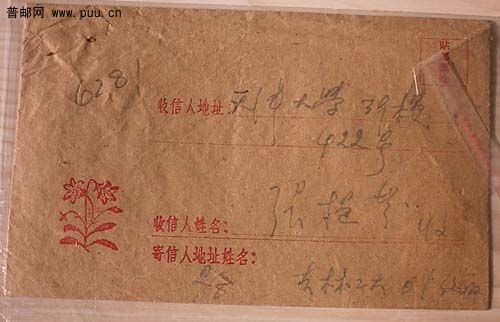 普邮网 www.puu.cn
贴
6281
收信人地址: 天津大学 39楼
422号
收信人姓名: 张
收
寄信人地址姓名:
吉林工大